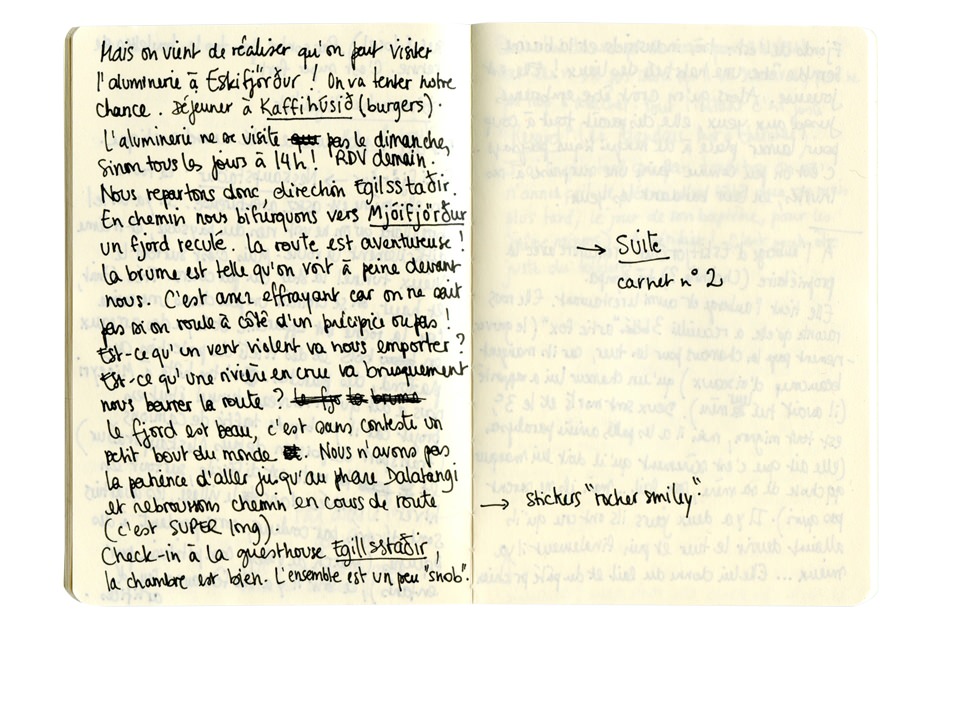 Mais on vient de réaliser qu'on peut visiter
l'aluminerie à Eskifjörður ! On va tenter notre
chance. Déjeuner à Kaffihúsið (burgers).
L'aluminerie ne se visite pas le dimanche,
sinon tous les jours à 14h ! RDV demain.
Nous repartons donc, direction Egilsstaðir.
En chemin nous bifurquons vers Mjóifjörður
un fjord reculé. La route est aventureuse !
La brume est telle qu'on voit à peine devant
nous. C'est assez effrayant car on ne sait
pas si on roule à côté d'un précipice ou pas !
Est-ce qu'un vent violent va nous emporter ?
Est-ce qu'une rivière en crue va brusquement
nous barrer la route ? le fjo la brume
le fjord est beau, c'est sans conteste un
petit bout du monde. Nous n'avons pas
la patience d'aller jusqu'au phare Dalatangi
et rebroussons chemin en cours de route
(c'est SUPER long).
Check-in à la guesthouse Egillsstaðir,
la chambre est bien. L'ensemble est un peu "snob".
→ SUITE
carnet n° 2
→ stickers "rocher smiley."